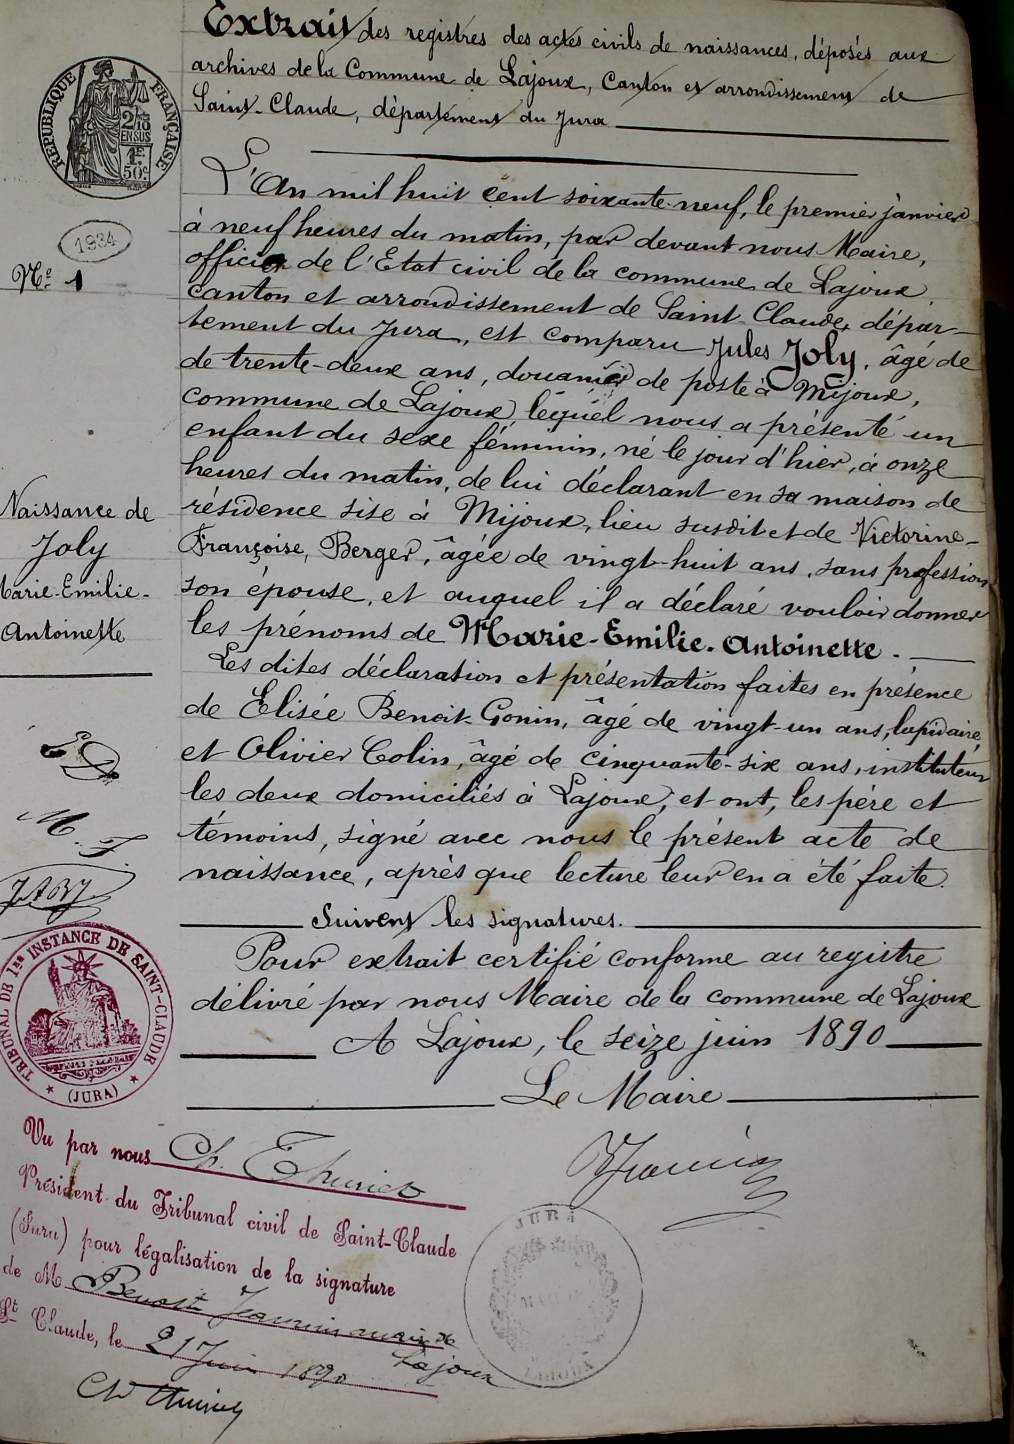 Extrait des registres des actes civils de naissances, déposés aux
archives de la Commune de Lajoux, Canton et arrondissement de
Saint-Claude, département du Jura
REPUBLIQUE FRANÇAISE
2/10
EN SUS
1F
50c
1934
N° 1
L'An mil huit cent soixante-neuf, le premier janvier
à neuf heures du matin, par devant nous Maire,
officier de l'Etat civil de la commune de Lajoux
canton et arrondissement de Saint-Claude, dépar-
tement du Jura, est comparu Jules Joly, âgé de
de trente-deux ans, douanier de poste à Mijoux,
commune de Lajoux, lequel nous a présenté un
enfant du sexe féminin, né le jour d'hier, à onze
heures du matin, de lui déclarant en sa maison de
résidence sise à Mijoux, lieu susdit et de Victorine-
Françoise, Berger, âgée de vingt-huit ans, sans profession
son épouse, et auquel il a déclaré vouloir donner
les prénoms de Marie-Emilie-Antoinette.
Naissance de
Joly
Marie-Emilie-
Antoinette
Les dites déclaration et présentation faites en présence
de Elisée Benoit-Gonin, âgé de vingt-un ans, lapidaire,
et Olivier Colin, âgé de cinquante-six ans, instituteur
les deux domiciliés à Lajoux, et ont, les père et
témoins, signé avec nous le présent acte de
naissance, après que lecture leur en a été faite.
Suivent les signatures.
Pour extrait certifié conforme au registre
délivré par nous Maire de la commune de Lajoux
A Lajoux, le seize juin 1890
Le Maire
TRIBUNAL DE 1RE INSTANCE DE SAINT-CLAUDE
(JURA)
Vu par nous Ch. Thuriet
Président du Tribunal civil de Saint-Claude
(Jura) pour légalisation de la signature
de M Benoit Jeannin maire de
Lajoux
St Claude, le 21 Juin 1890
Ch Thuriet
JURA
LAJOUX